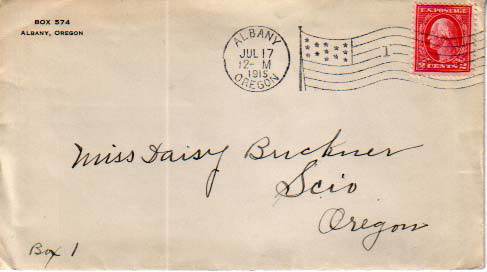 BOX 574
ALBANY, OREGON
ALBANY
JUL 17
12- M
OREGON
1
U.S. POSTAGE
2 CENTS 2
Miss Daisy Buckner
Scio
Oregon
Box 1